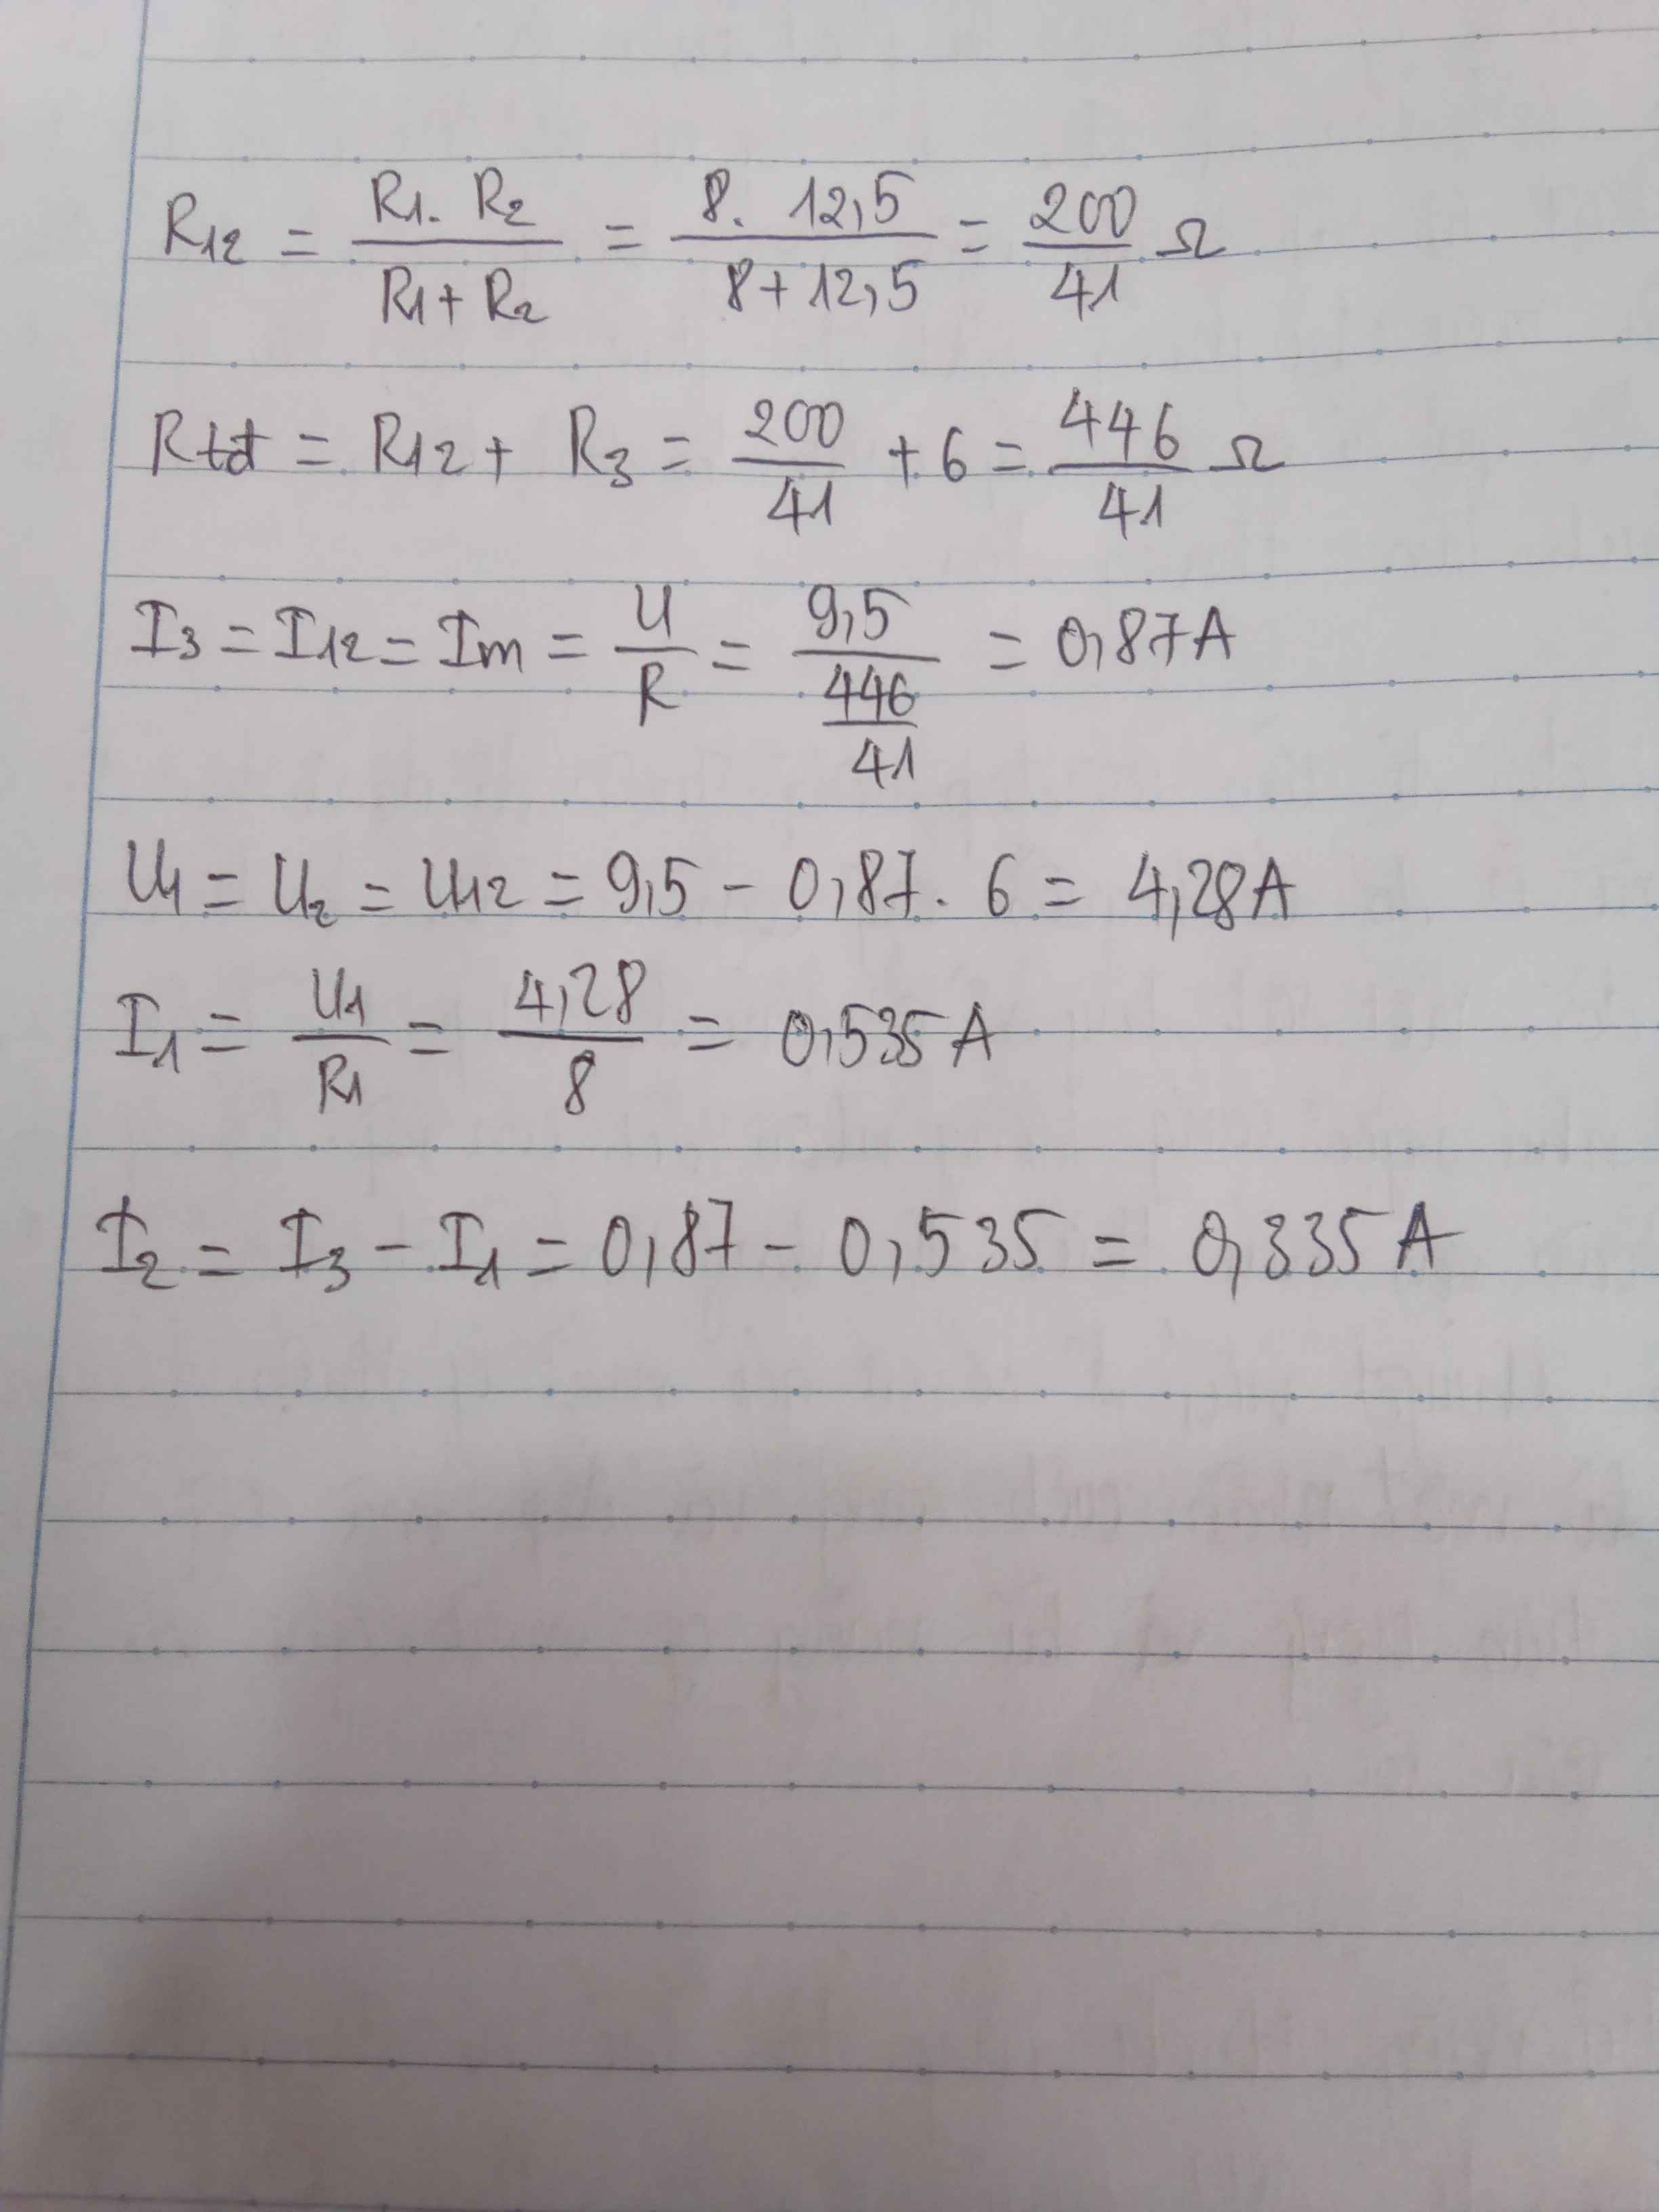 R12 = R1. R2 / R1 + R2 = 8. 12,5 / 8 + 12,5 = 200 / 41 Ω
Rtđ = R12 + R3 = 200 / 41 + 6 = 446 / 41 Ω
I3 = I12 = Im = U / R = 9,5 / 446 / 41 = 0,87A
U1 = U2 = U12 = 9,5 - 0,87. 6 = 4,28A
I1 = U1 / R1 = 4,28 / 8 = 0,535A
I2 = I3 - I1 = 0,87 - 0,535 = 0,335A